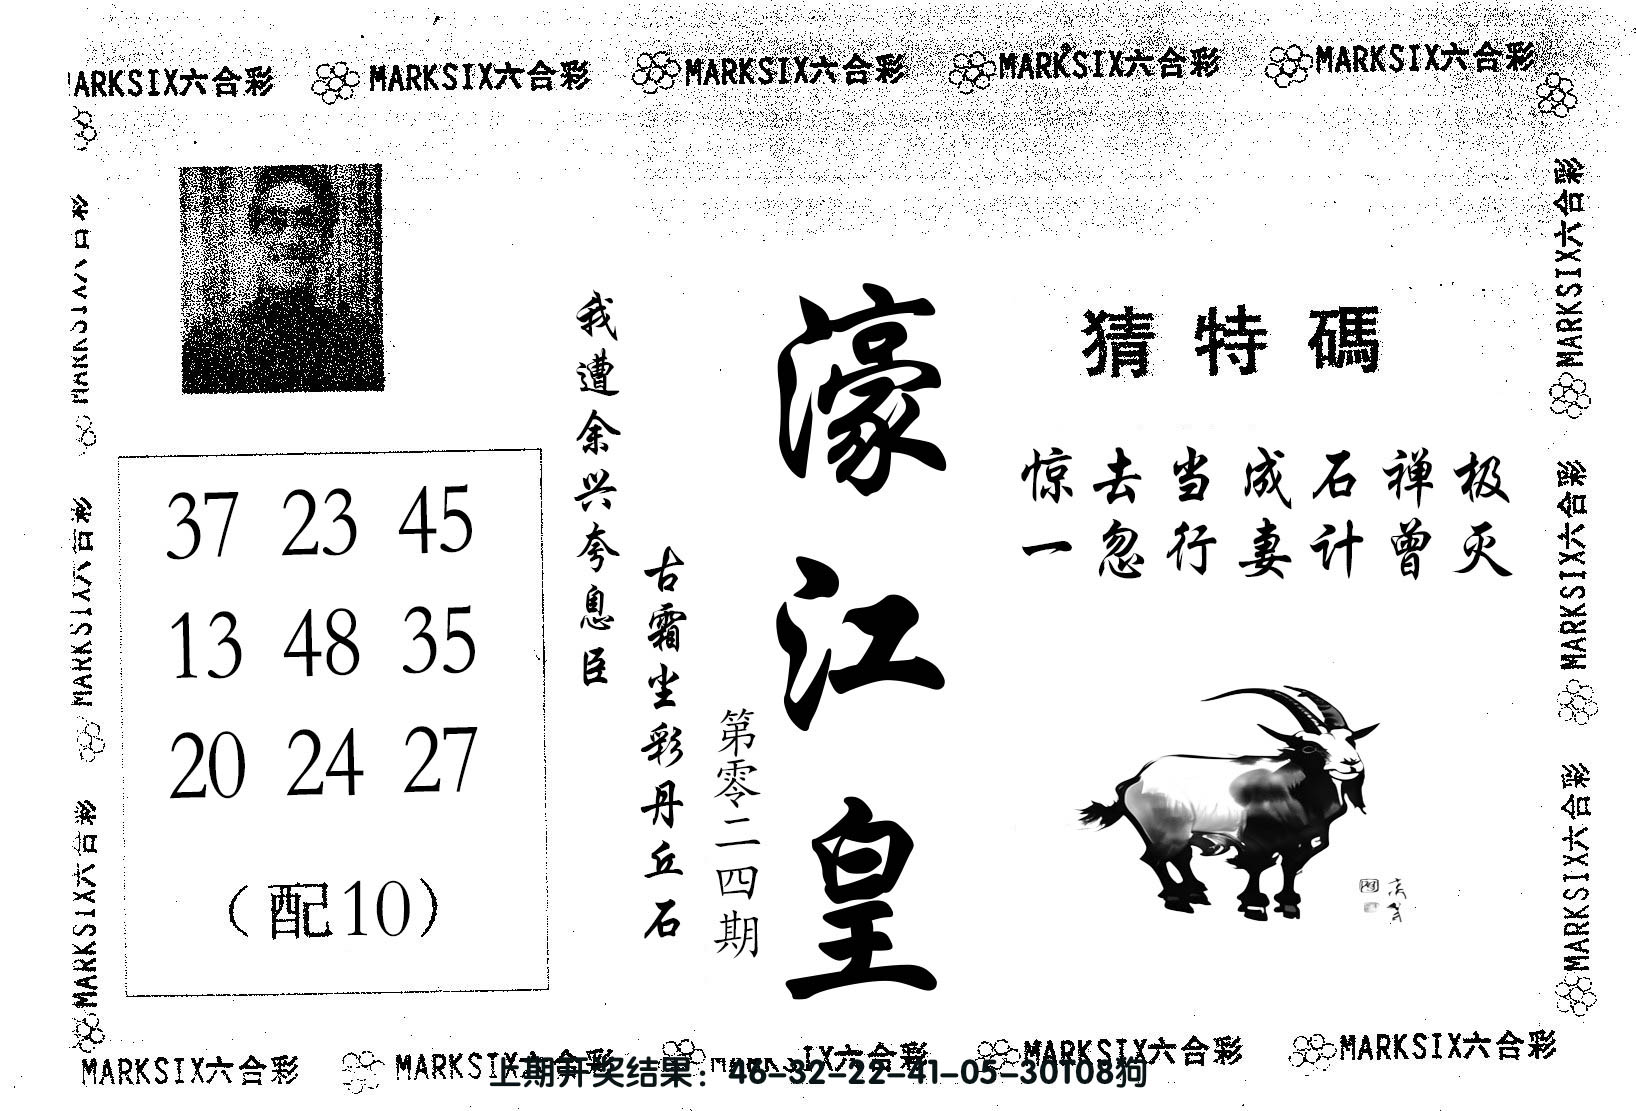 MARKSIX六合彩 MARKSIX六合彩 MARKSIX六合彩 MARKSIX六合彩 MARKSIX六合彩
MARKSIX六合彩
MARKSIX六合彩
MARKSIX六合彩
MARKSIX六合彩
MARKSIX六合彩
MARKSIX六合彩
37 23 45
13 48 35
20 24 27
（配10）
我遭余兴夸息臣
古霜坐彩丹丘石
第零二四期
濠江皇
猜特碼
惊去当成石禅极
一忽行妻计曾灭
MARKSIX六合彩 MARKSIX六合彩 MARKSIX六合彩 MARKSIX六合彩
上期开奖结果：46-32-22-41-05-30T08狗